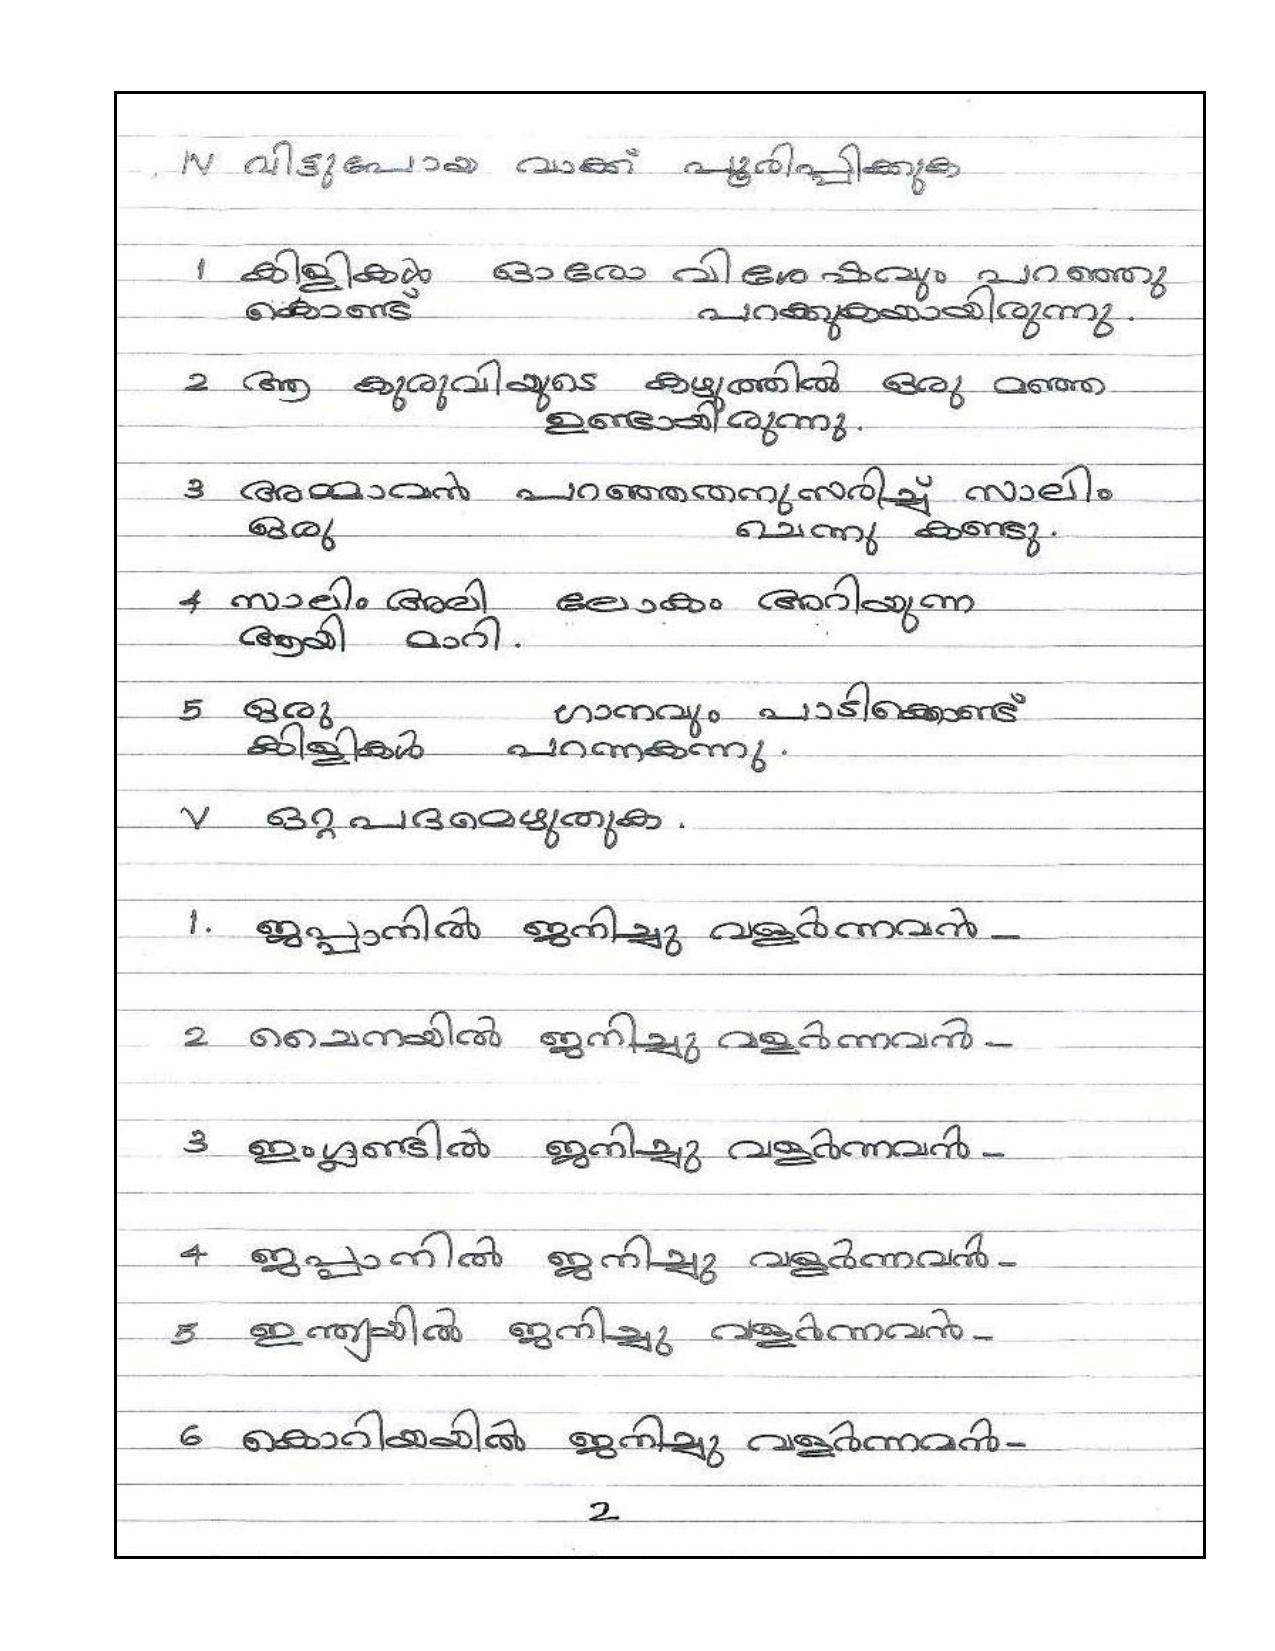 IV വിട്ടുപോയ വാക്ക് പൂരിപ്പിക്കുക
1 കിളികൾ ഓരോ വിശേഷവും പറഞ്ഞു
കൊണ്ട് പറക്കുകയായിരുന്നു.
2 ആ കുരുവിയുടെ കഴുത്തിൽ ഒരു മഞ്ഞ
ഉണ്ടായിരുന്നു.
3 അമ്മാവൻ പറഞ്ഞതനുസരിച്ച് സാലിം
ഒരു ചെന്നു കണ്ടു.
4 സാലിം അലി ലോകം അറിയുന്ന
ആയി മാറി.
5 ഒരു ഗാനവും പാടിക്കൊണ്ട്
കിളികൾ പറന്നകന്നു.
V ഒറ്റപദമെഴുതുക.
1. ജപ്പാനിൽ ജനിച്ചു വളർന്നവൻ –
2 ചൈനയിൽ ജനിച്ചു വളർന്നവൻ –
3 ഇംഗ്ലണ്ടിൽ ജനിച്ചു വളർന്നവൻ –
4 ജപ്പാനിൽ ജനിച്ചു വളർന്നവൻ –
5 ഇന്ത്യയിൽ ജനിച്ചു വളർന്നവൻ –
6 കൊറിയയിൽ ജനിച്ചു വളർന്നവൻ –
2